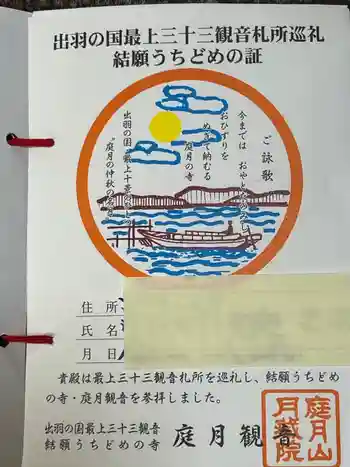 出羽の国最上三十三観音札所巡礼
結願うちどめの証
ご詠歌
今までは おやとたのみし
おひずりを
ぬぎて納むる
庭月の寺
出羽の国
庭月の仲秋の
住所
氏名
月日
貴殿は最上三十三観音札所を巡礼し、結願うちどめ
の寺・庭月観音を参拝しました。
出羽の国最上三十三観音
結願うちどめの寺 庭月観音
庭月山
月蔵院